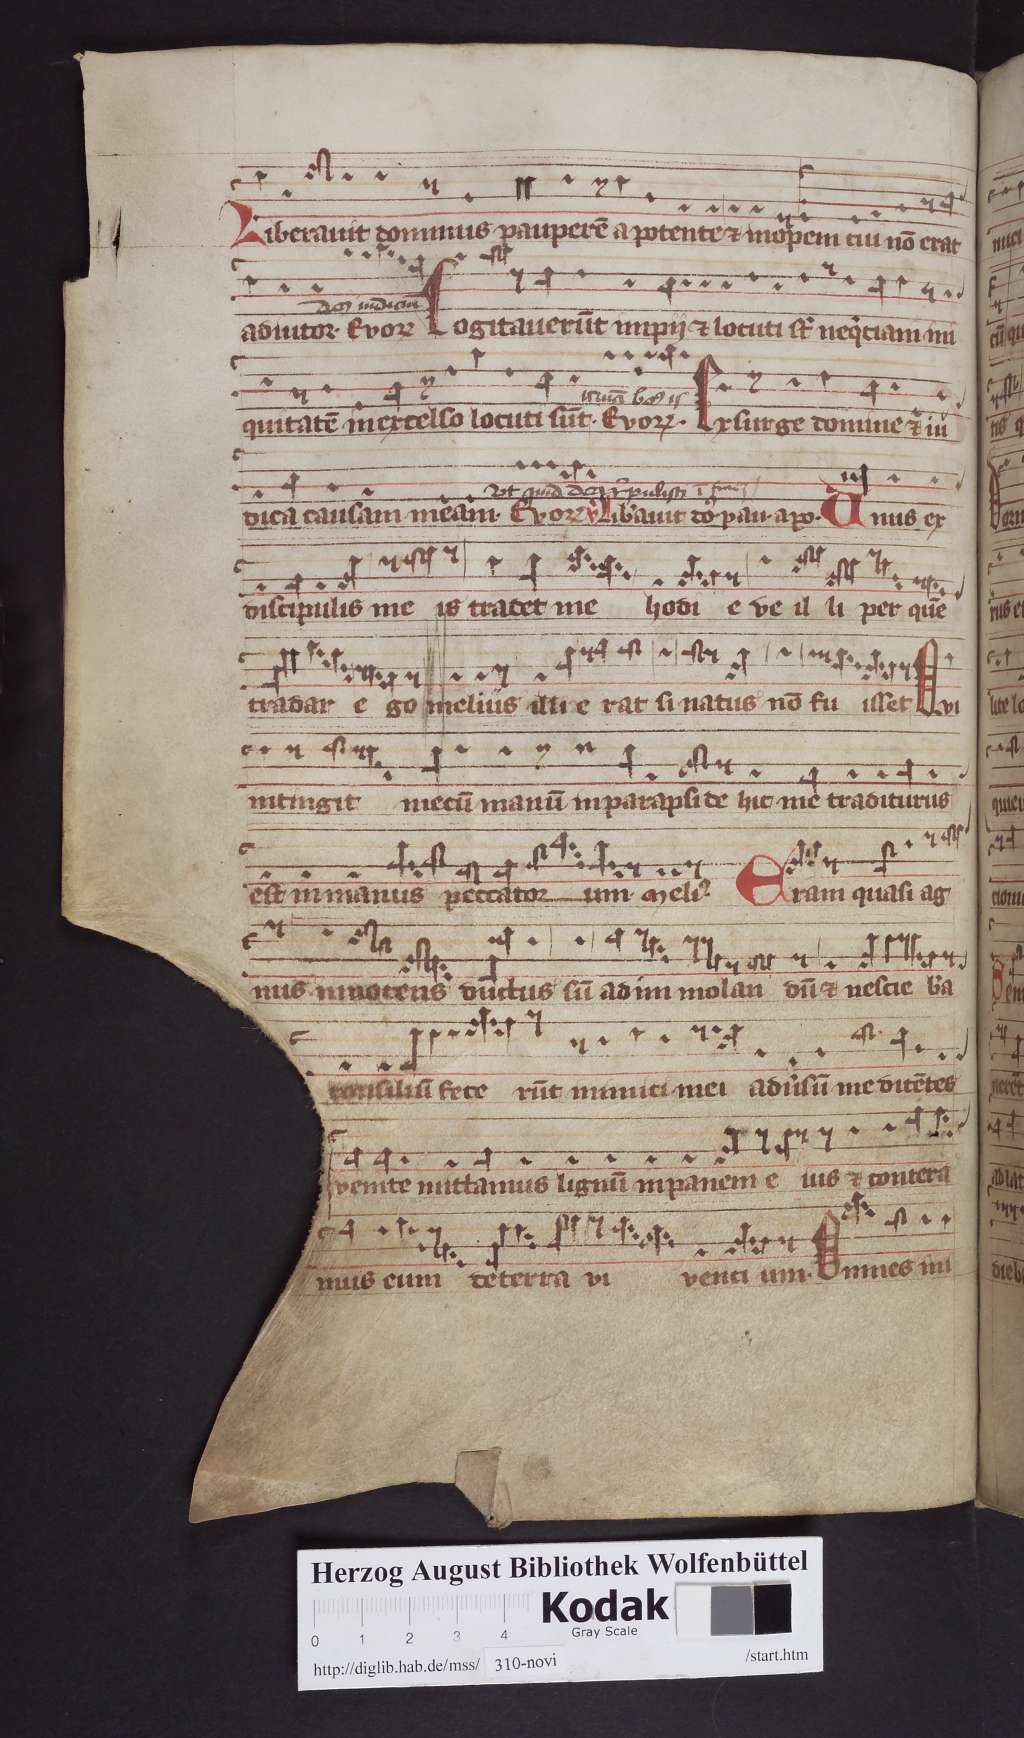 Liberavit dominus pauperē a potente ⁊ inopem cui nō erat
Deus iudiciū
adiutor. Evovꝫ Cogitaverūt impij ⁊ locuti sūt neqͥciam ini
quitatē in excelso locuti sūt. Evovꝫ. Exsurge domine ⁊ iu
Ut quid deus repulisti ī finē
dica causam meam. Evovꝫ Lib'avit do pau. a po. Unus ex
discipulis me is tradet me hodi e ve il li per quē
tradar e go melius illi e rat si natus nō fu isset Qvi
intingit mecū manū in parapside hic me traditurus
est in manus peccator um. Meliꝰ Eram quasi ag
nus innocens ductus sū ad im molan dū ⁊ nescie bā
consiliū fece rūt inimici mei adv'sū me dicētes
venite mittamus lignū in panem e ius ⁊ contera
mus eum de terra vi venci um. Omnes ini
Herzog August Bibliothek Wolfenbüttel
Kodak
Gray Scale
0 1 2 3 4
http://diglib.hab.de/mss/ 310-novi /start.htm